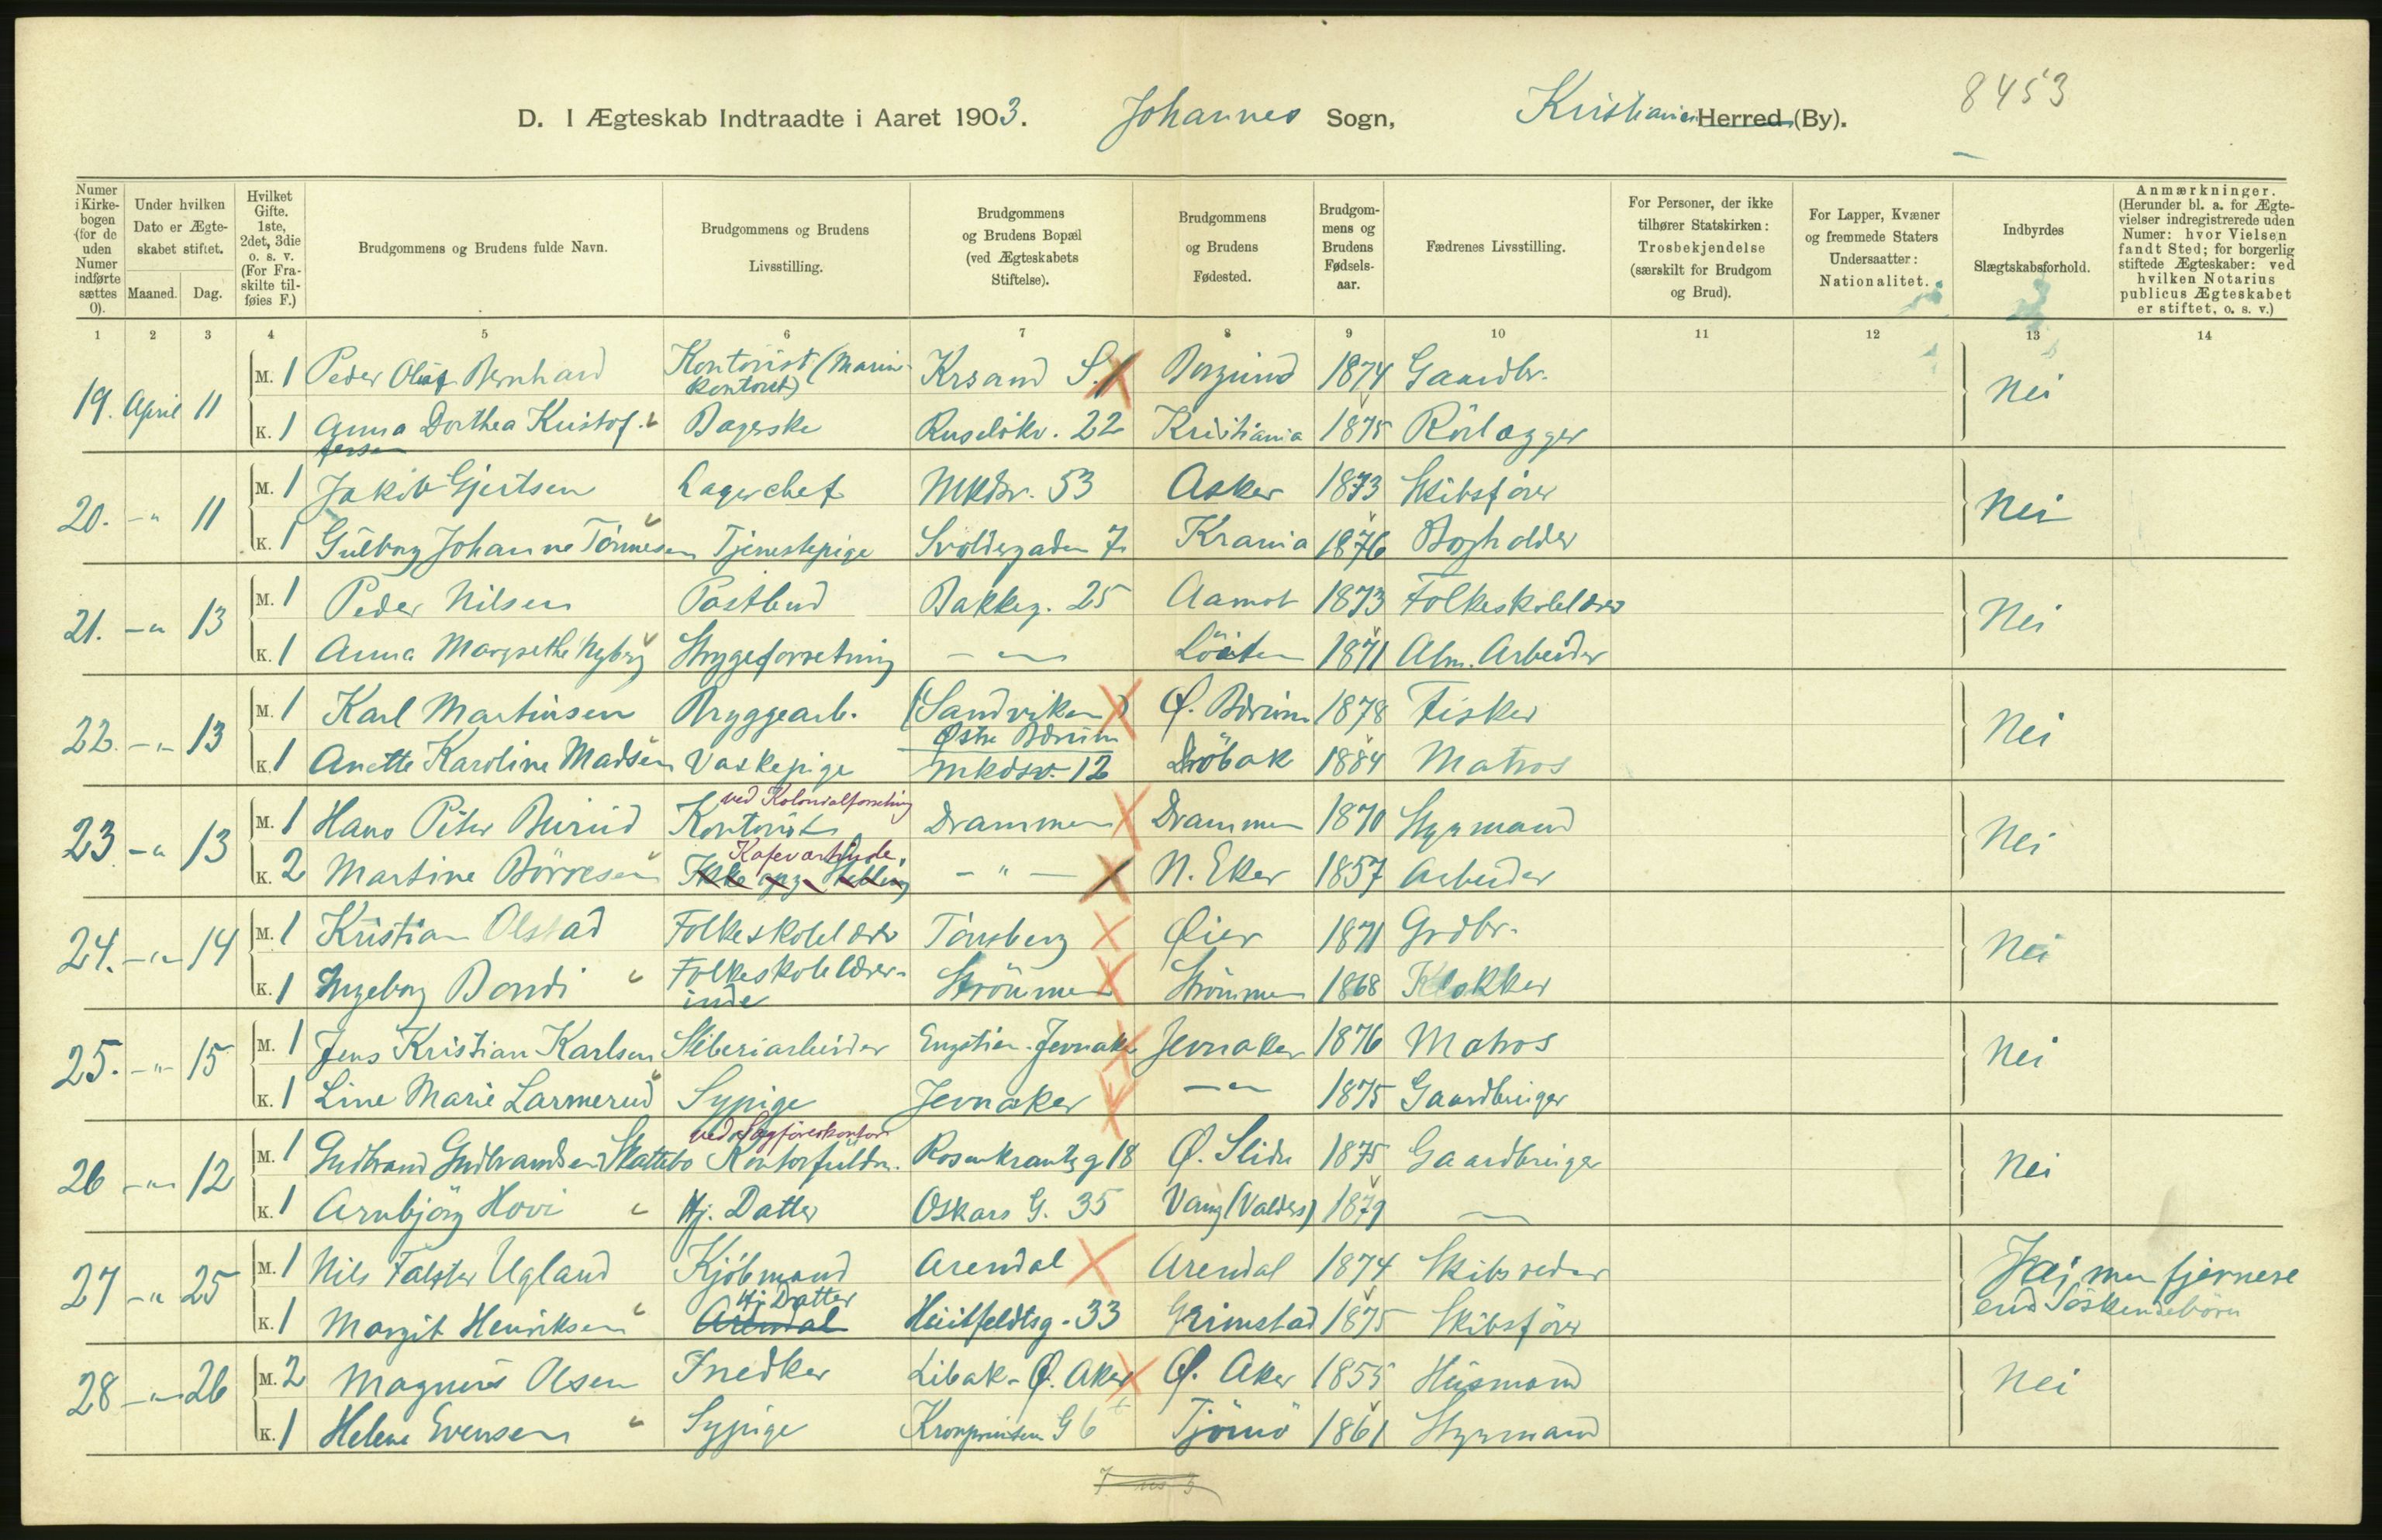 8453
D. I Ægteskab Indtraadte i Aaret 1903. Johannes Sogn, Kristiania Herred (By).
Numer i Kirkebogen (for de uden Numer indførte sættes 0).
Under hvilken Dato er Ægteskabet stiftet.
Maaned. Dag.
Hvilket Gifte. 1ste, 2det, 3die o. s. v. (For Fraskilte tilføies F.)
Brudgommens og Brudens fulde Navn.
Brudgommens og Brudens Livsstilling.
Brudgommens og Brudens Bopæl (ved Ægteskabets Stiftelse).
Brudgommens og Brudens Fødested.
Brudgommens og Brudens Fødselsaar.
Fædrenes Livsstilling.
For Personer, der ikke tilhører Statskirken: Trosbekjendelse (særskilt for Brudgom og Brud).
For Lapper, Kvæner og fremmede Staters Undersaatter: Nationalitet.
Indbyrdes Slægtskabsforhold.
Anmærkninger. (Herunder bl. a. for Ægtevielser indregistrerede uden Numer: hvor Vielsen fandt Sted; for borgerlig stiftede Ægteskaber: ved hvilken Notarius publicus Ægteskabet er stiftet, o. s. v.)
1 2 3 4 5 6 7 8 9 10 11 12 13 14
19. April 11 M. 1 Peder Olaf Bernhard Kontorist (Marinkontoret) Krsand S. Borgund 1874 Gaardbr. Nei
K. 1 Anna Dorthea Kristoffersen Bagerske Ruseløkv. 22 Kristiania 1875 Rörlægger
20. -"- 11 M. 1 Jakob Gjertsen Lagerchef Mkdsv. 53 Asker 1873 Skibsfører Nei
K. 1 Gulborg Johanne Tönnesen Tjenestepige Svoldergaden 7 Krania 1876 Bogholder
21. -"- 13 M. 1 Peder Nilsen Postbud Bakkeg. 25 Aamot 1873 Folkeskolelærer Nei
K. 1 Anna Margrethe Nyberg Strygeforretning -"- Löiten 1871 Alm. Arbeider
22. -"- 13 M. 1 Karl Martinsen Bryggearb. (Sandviken) Østre Bærum Ø. Bærum 1878 Fisker Nei
K. 1 Anette Karoline Madsen Vaskepige Mkdsv. 12 Dröbak 1884 Matros
23 -"- 13 M. 1 Hans Peter Burud Kontorist ved Kolonialforretning Drammen Drammen 1870 Styrmand Nei
K. 2 Martine Börresen Ikke opg. Stilling Kafevertinde. -"- N. Eker 1857 Arbeider
24. -"- 14 M. 1 Kristian Olstad Folkeskolelærer Tönsberg Øier 1871 Grdbr. Nei
K. 1 Ingeborg Bondi Folkeskolelærerinde Strömmen Strömmen 1868 Klokker
25. -"- 15 M. 1 Jens Kristian Karlsen Sliberiarbeider Jevnaker Jevnaker 1876 Matros Nei
K. 1 Line Marie Larmerud Sypige Jevnaker -"- 1875 Gaardbruger
26 -"- 12 M. 1 Gudbrand Gudbrandsen Slattebo Kontorfuldm. ved Sagförerkontor Rosenkrantzg 18 Ø. Slidre 1875 Gaardbruger Nei
K. 1 Arnbjörg Hovi Hj. Datter Oskars G. 35 Vang (Valders) 1879 -"-
27 -"- 25 M. 1 Nils Falster Ugland Kjöbmand Arendal Arendal 1874 Skibsreder Nei, men fjernere end Söskendebörn
K. 1 Margit Henriksen Arendal Hj. Datter Huitfeldtsg. 33 Grimstad 1875 Skibsförer
28 -"- 26 M. 2 Magnus Olsen Snedker Libak - Ø. Aker Ø. Aker 1855 Husmand Nei
K. 1 Helene Evensen Sypige Kronprinsen G 6 Tjömö 1861 Styrmand